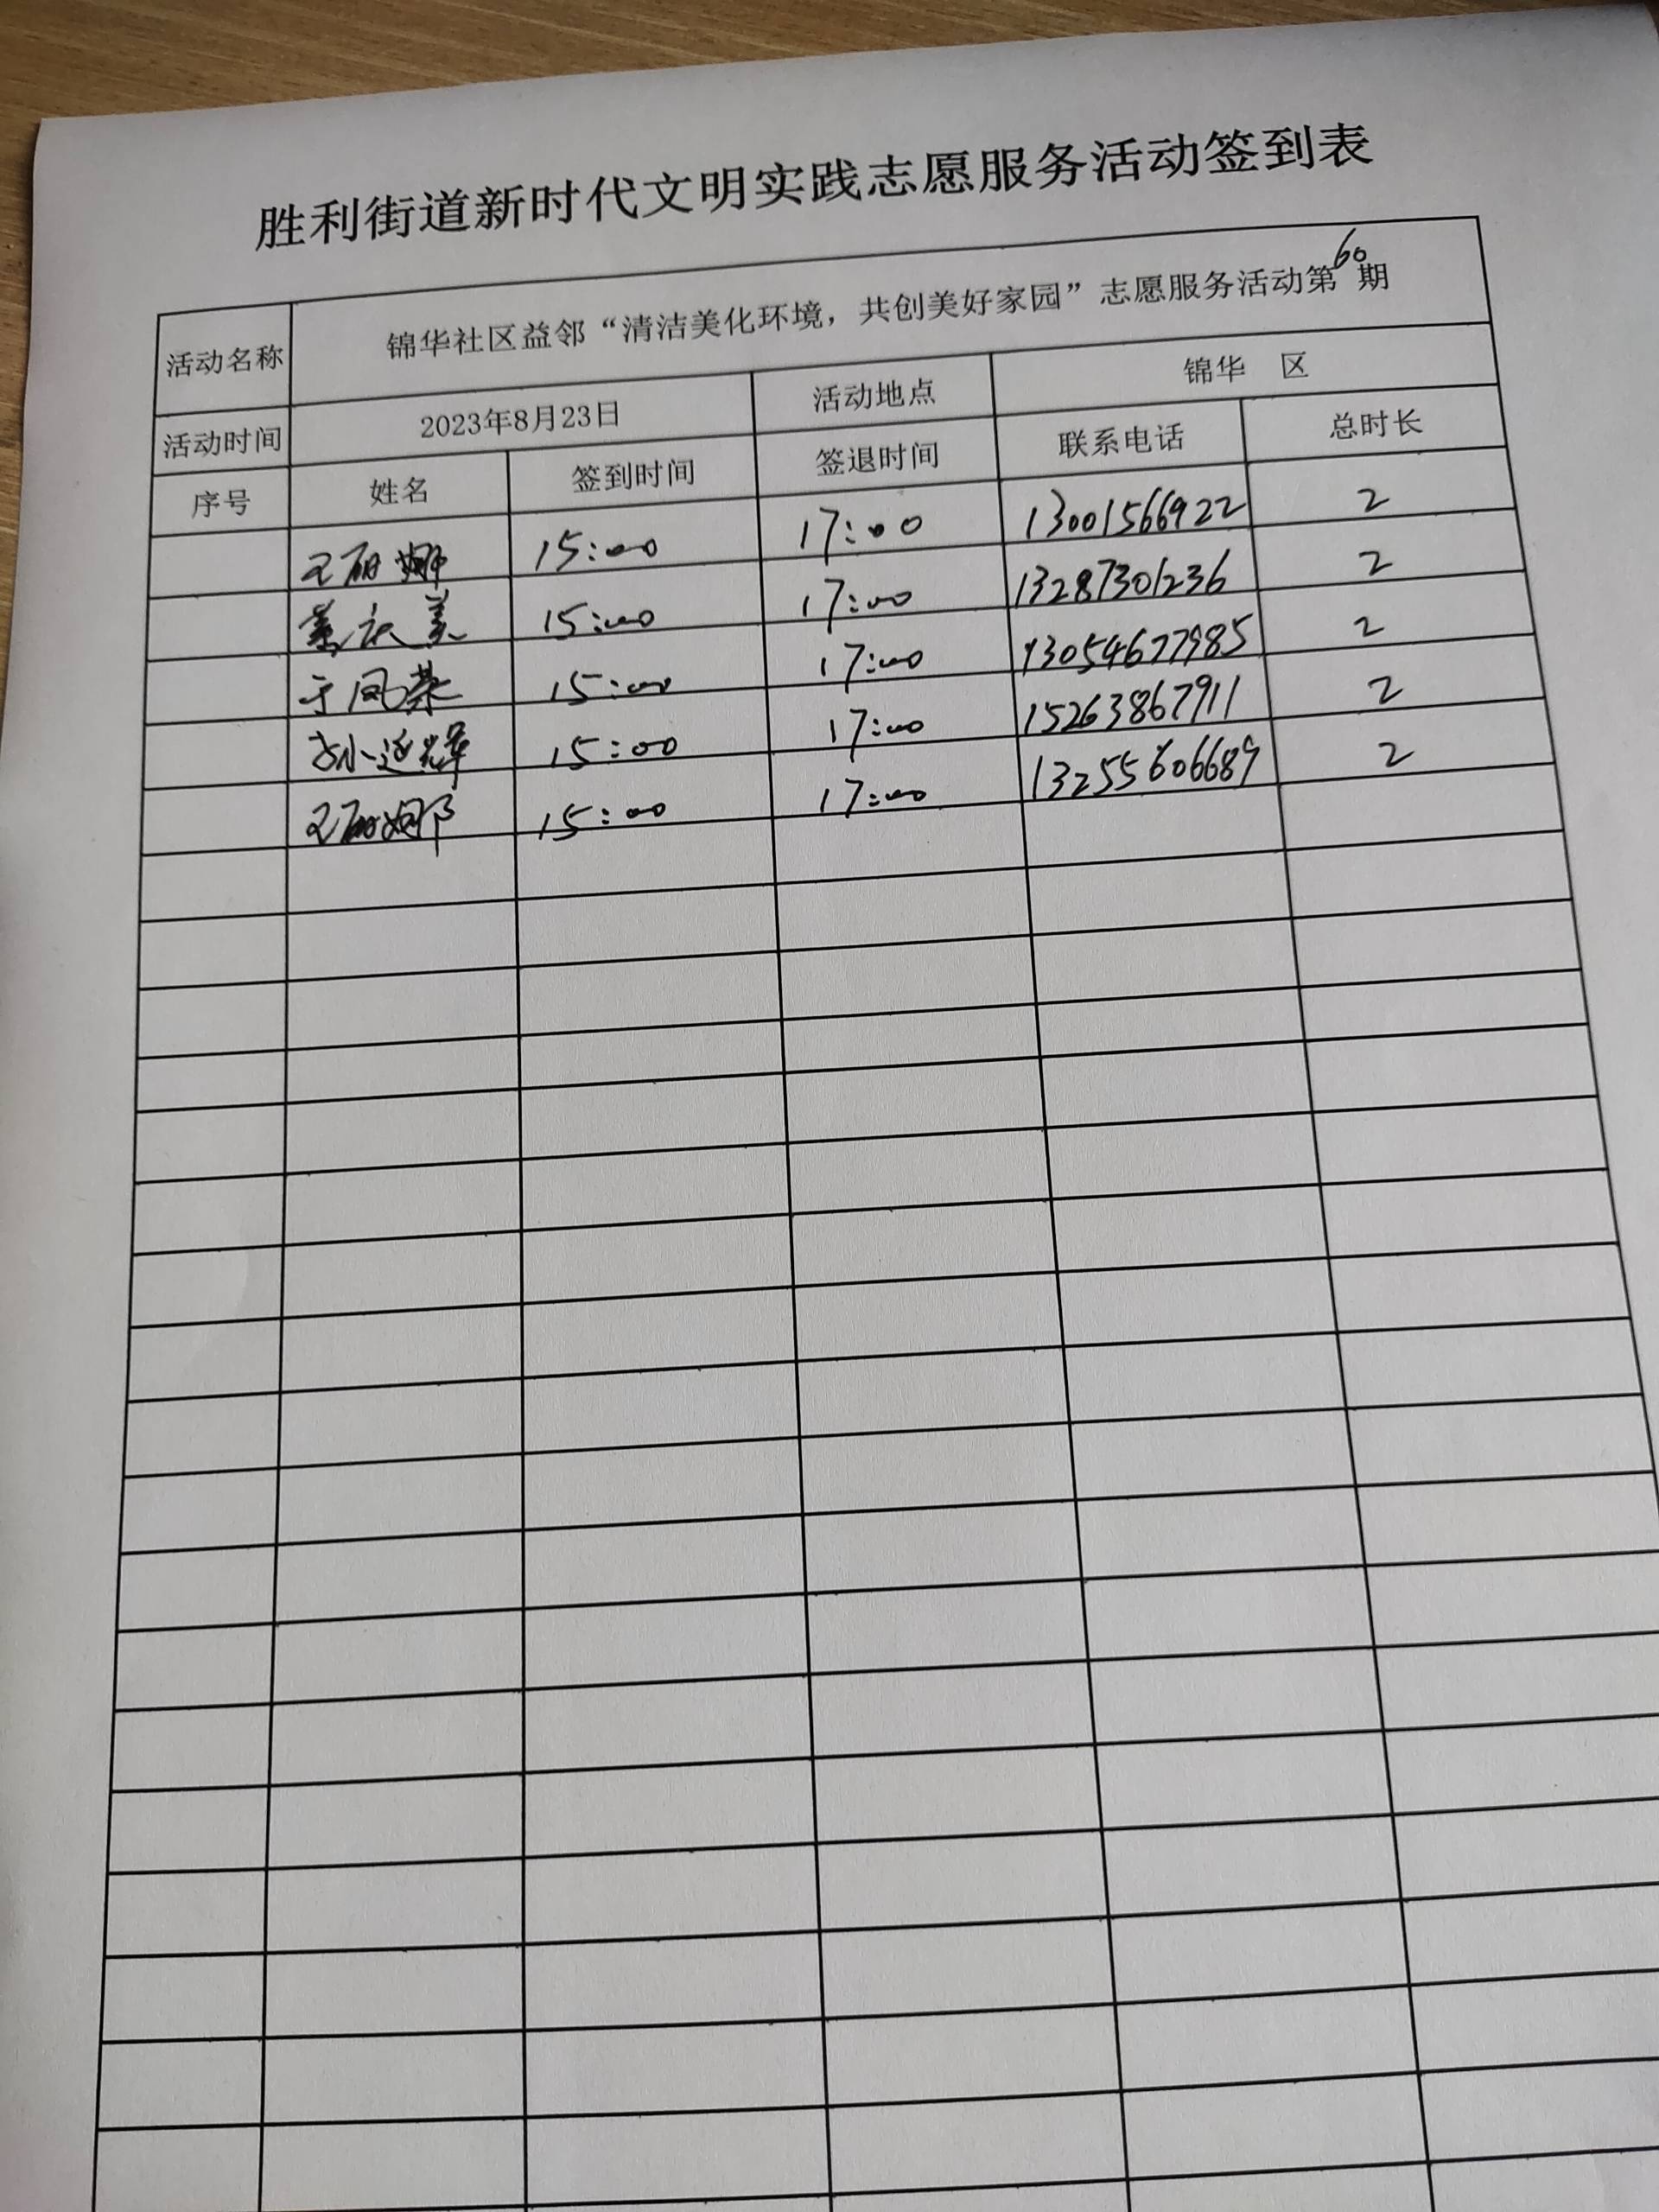 胜利街道新时代文明实践志愿服务活动签到表
活动名称 锦华社区益邻“清洁美化环境，共创美好家园”志愿服务活动第60期
活动时间 2023年8月23日 活动地点 锦华 区
序号 姓名 签到时间 签退时间 联系电话 总时长
王丽娜 15:00 17:00 13001566922 2
美 15:00 17:00 13287301236 2
于凤荣 15:00 17:00 13054677985 2
孙延辉 15:00 17:00 15263867911 2
王丽娜 15:00 17:00 13255606689 2